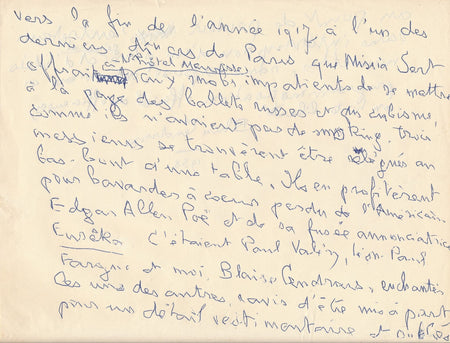 vers la fin de l'année 1917 à l'un des
derniers dîners de Paris que Misia Sert
à l'hôtel Meurice
offrait aux snobs impatients de se mettre
à la page des ballets russes et du cubisme,
comme ils n'avaient pas de smoking, trois
messieurs se trouvèrent être relégués au
bas-bout d'une table. Ils en profitèrent
pour bavarder à coeur perdu de l'américain
Edgar Allen Poë et de sa fusée annonciatrice
Eurêka. C'étaient Paul Valéry, Léon-Paul
Fargue et moi, Blaise Cendrars, enchantés
les uns des autres, ravis d'être mis à part
pour un détail vestimentaire et oubliés